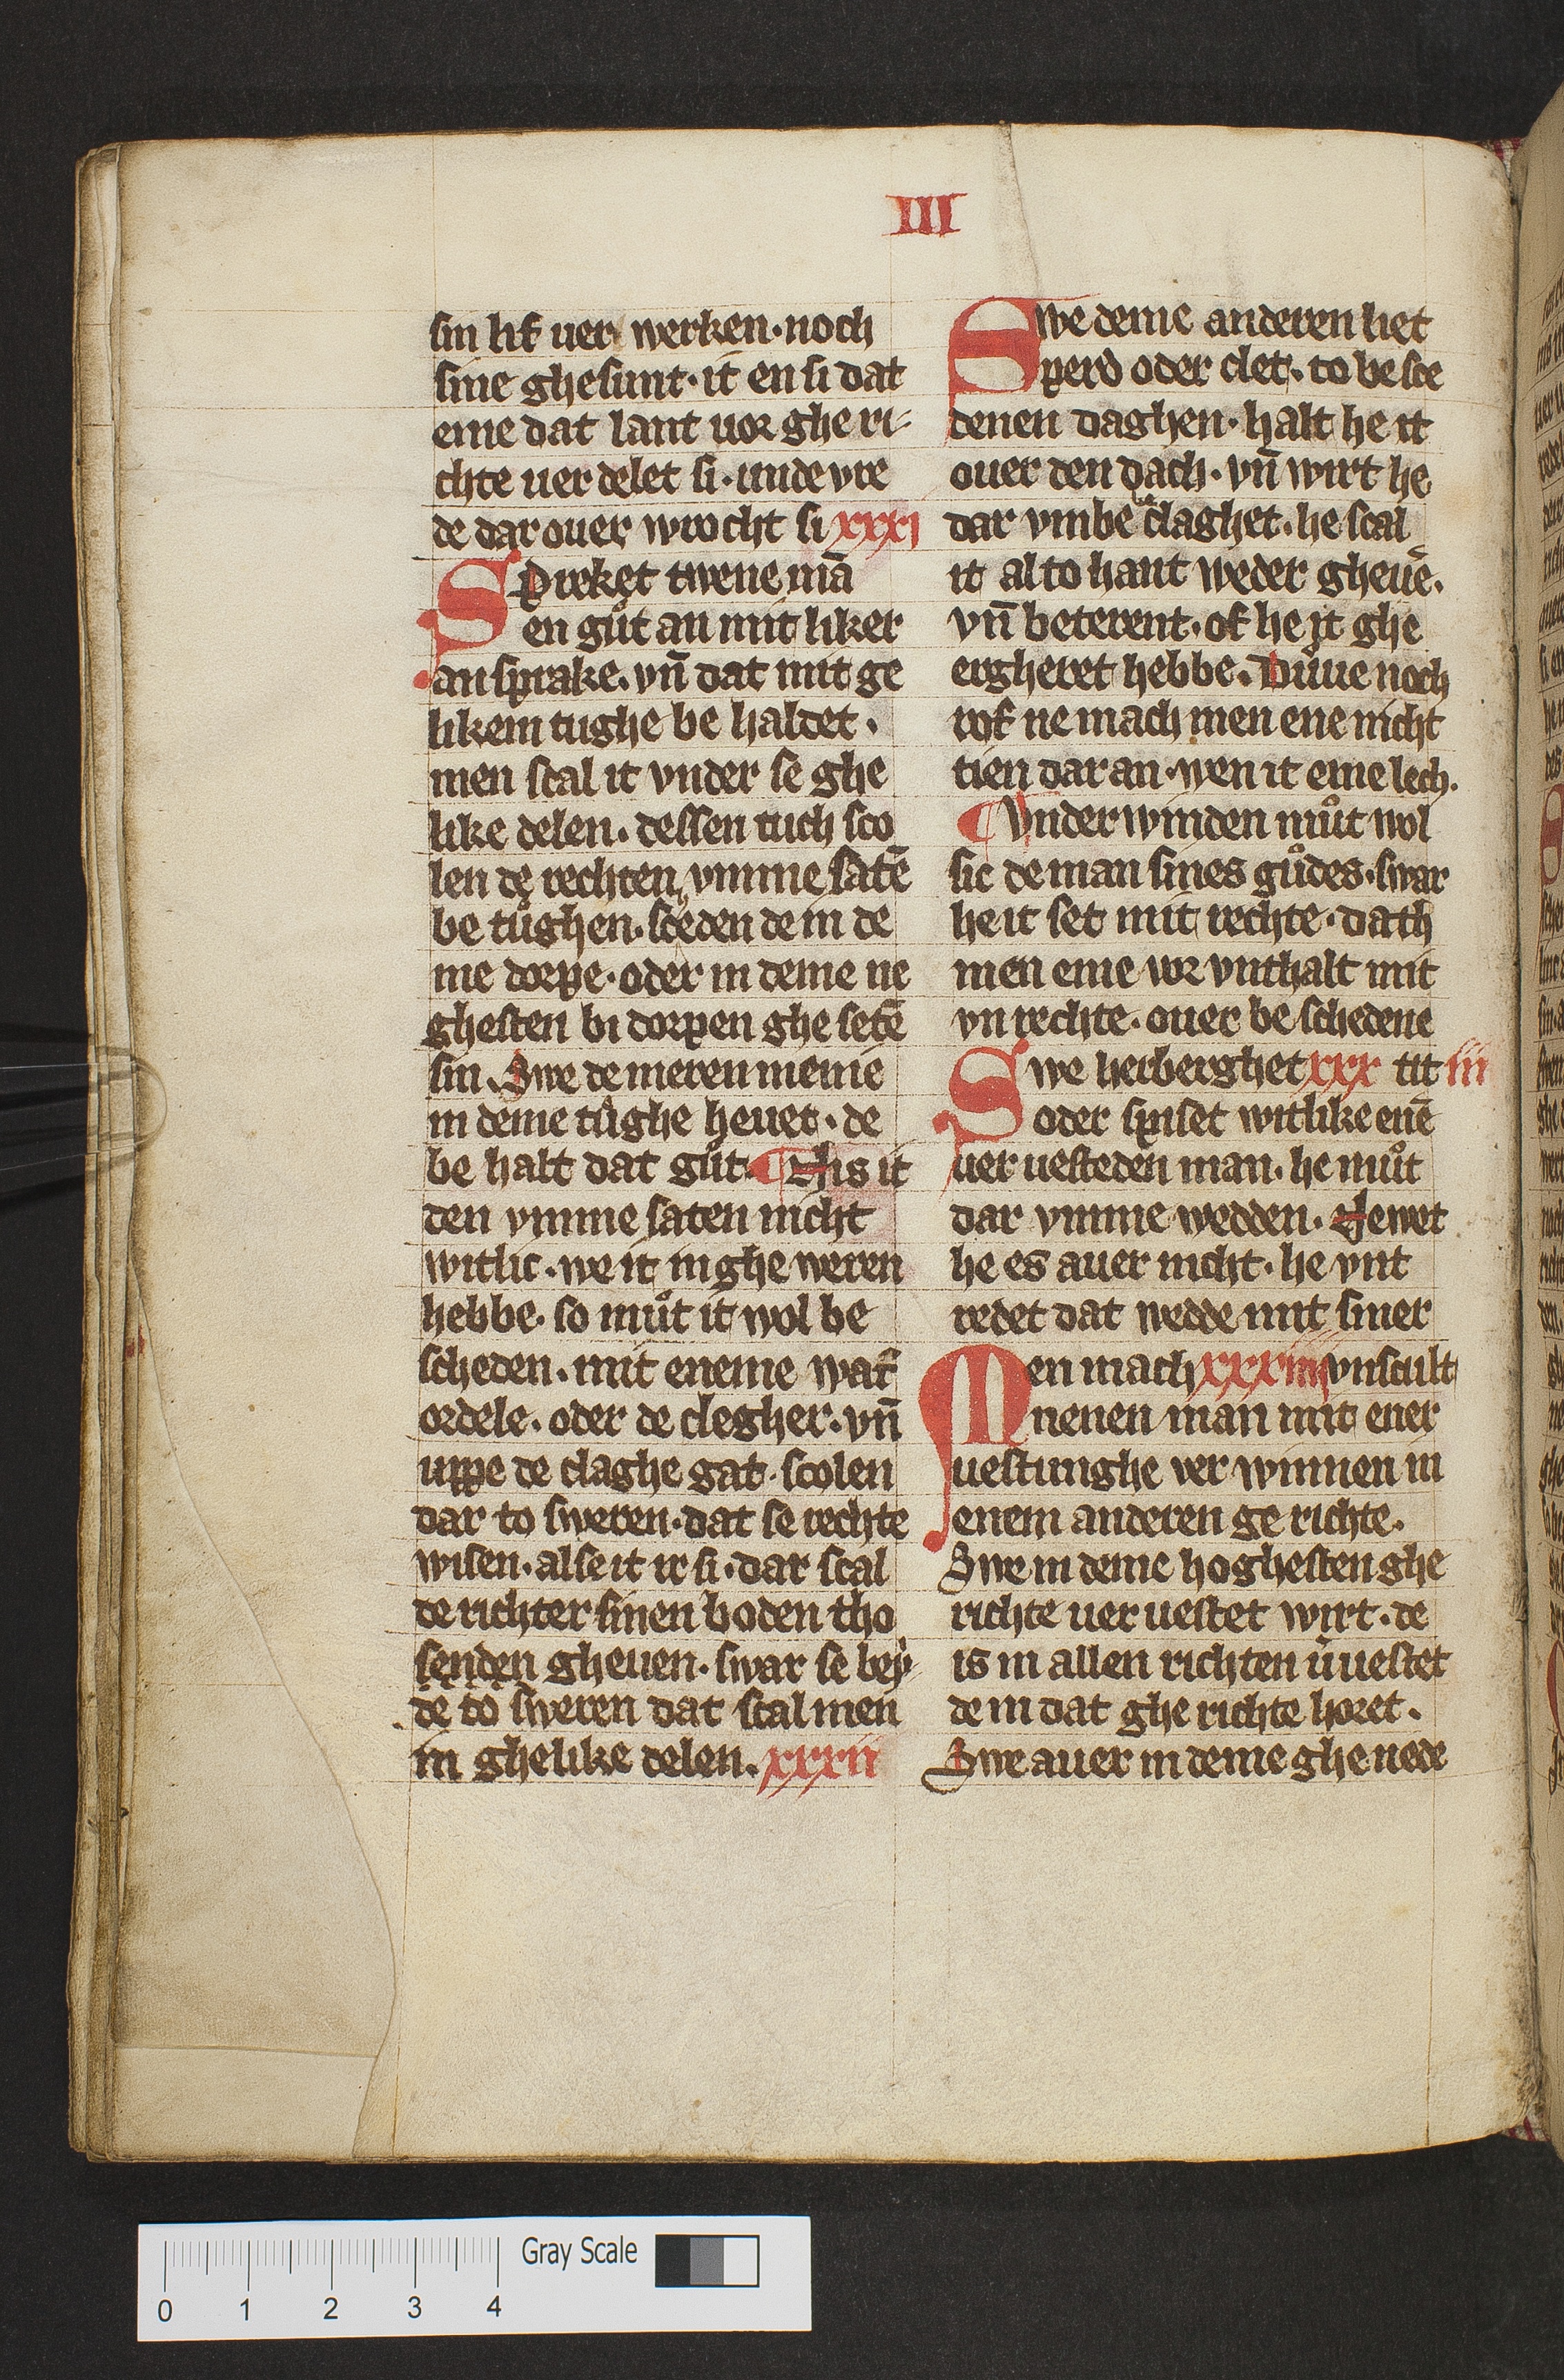 III
sin lif uer werken· noch
sine ghesunt· it en si dat
eme dat lant uor ghe ri-
chte uer delet si· unde vre
de dar ouer wrocht si xxxi
Spreket twene mā
en gůt an mit liker
an sprake· vn̄ dat mit ge
likem tughe be haldet·
men scal it vnder se ghe
like delen· dessen tuch sco
len de rechten vmme satē
be tůghen· de in de
me dorpe· oder in deme ne
ghesten bi dorpen ghe setē
sin· Swe de meren menie
in deme tůghe heuet· de
be halt dat gůt· ¶ His it
den vmme saten nicht
witlic· we it in ghe weren
hebbe· so můt it wol be
scheden· mit eneme wat̄
ordele· oder de clegher· vn̄
uppe de claghe gat· scolen
dar to sweren· dat se rechte
wisen· alse it ir si· dar scal
de richter sinen boden tho
senden gheuen· swar se bey-
de to sweren dat scal men
in ghelike delen· xxxii
Swe deme anderen liet
perd oder clet· to be sce
denen daghen· halt he it
ouer den dach· vn̄ wirt he
dar vmbe be claghet· he scal
it al to hant weder gheuē·
vn̄ beterent· of he it ghe
ergheret hebbe· Důue noch
rof ne mach men ene nicht
tien dar an· wen it eme lech·
¶ Vnder winden můt wol
sic de man sines gůdes· swar
he it set mit rechte· dath
men eme vor vnthalt mit
vn rechte· ouer be schedene
Swe herberghet xxx tit iii
oder spiset witlike enē
uer uesteden man· he můt
dar vmme wedden· Hewet
he es auer nicht· he vnt
redet dat wedde mit siner
Men mach xxxiiii vnscult
nenen man mit ener
uestunghe ver winnen in
enem anderen ge richte·
Swe in deme hoghesten ghe
richte uer uestet wirt· de
is in allen richten ůuestet
de in dat ghe richte horet·
Swe auer in deme ghe nede
Gray Scale
0 1 2 3 4